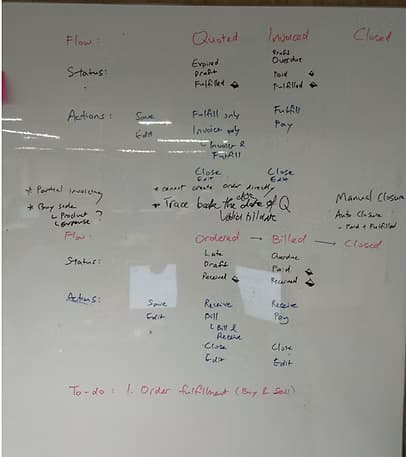 Flow: Quoted Invoiced Closed
Status: Expired Draft
Draft Overdue
Fulfilled Paid
Fulfilled
Actions: Save Fulfill only Fulfill
Edit Invoice only Pay
↳ Invoice &
Fulfill
Close Close
Edit Edit
* Partial invoicing * cannot create order directly
* Buy side * Trace back the date of Q
↳ Product ?
↳ Expense
Manual Closure
Auto Closure
- Paid + Fulfilled
Flow: Ordered → Billed → Closed
Status: Late Overdue
Draft Paid
Received Received
Actions: Save Receive Receive
Edit Bill Pay
↳ Bill &
Receive
Close Close
Edit Edit
To-do: 1. Order fulfillment (Buy & Sell)